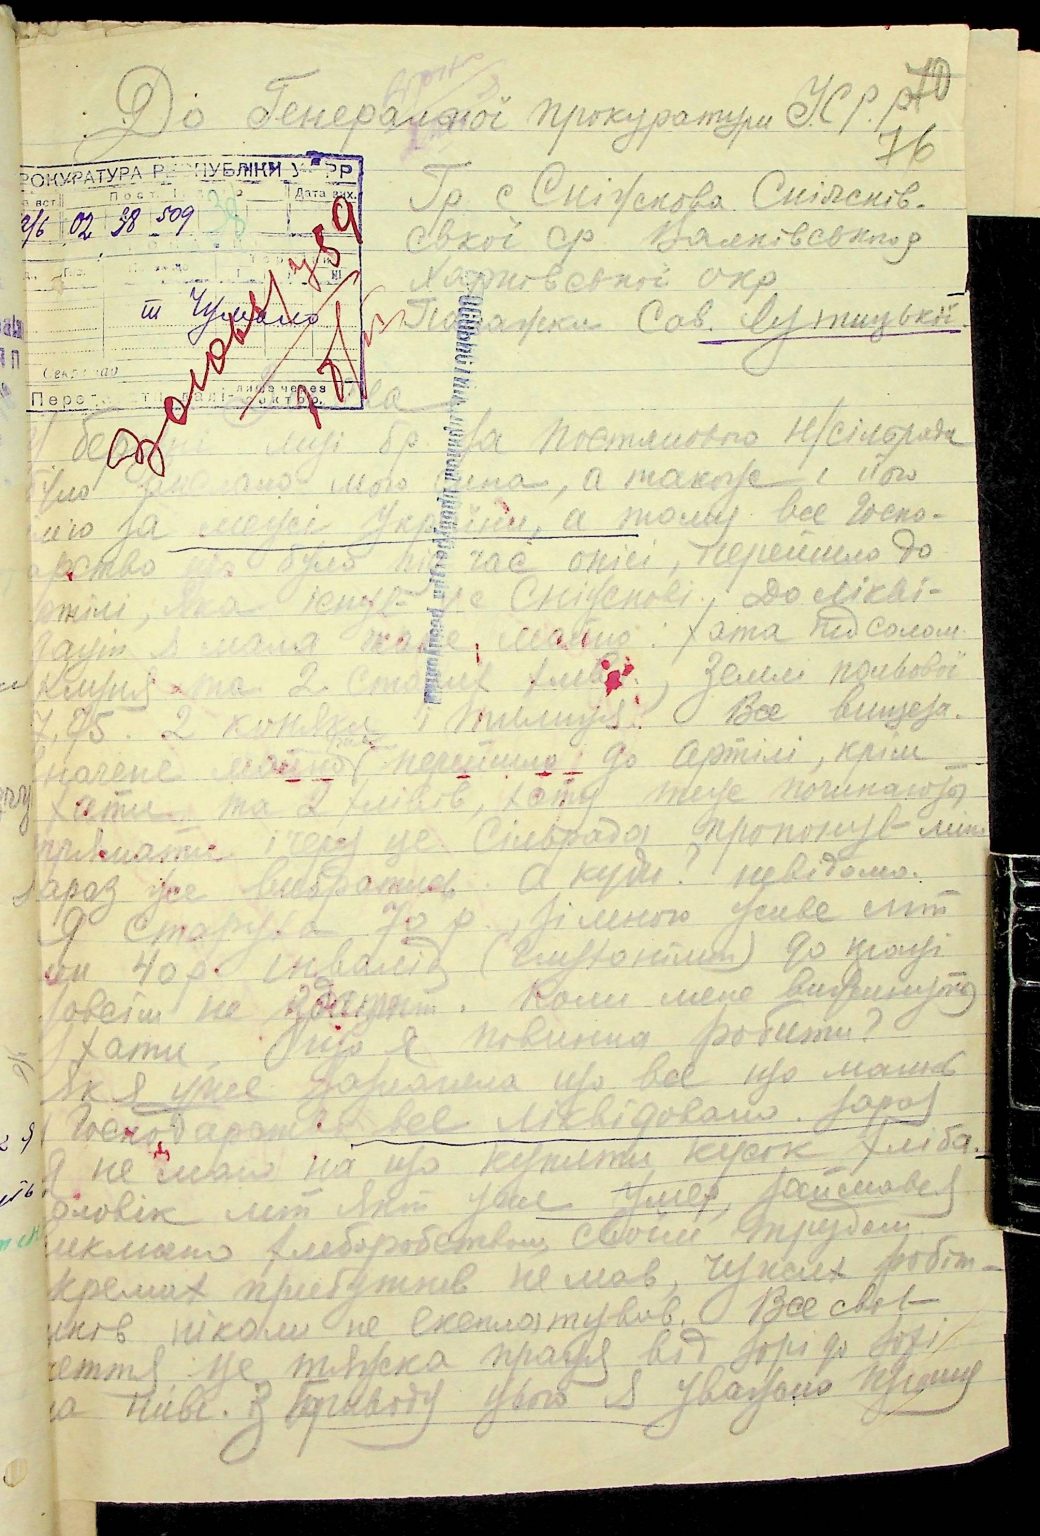 До Генеральної прокуратури УСРР
70
76
ПРОКУРАТУРА РЕСПУБЛІКИ У РР
Дата вих.
02 38 509
38
759
Гр с Сніжкова Сніжків-
ської ср Валківського р
Харковської окр
Параски Сав. Лутицької
Перег
лише через
сектор.
За
березні місці бр за постановою Н/сільради
було заслано мого сина, а також і його
за межі України, а тому все госпо-
дарство що було під час описі, перейшло до
артілі, яка існує у с Сніжкові, до лікві-
дації я мала таке майно: хата під солом.
клуня та 2 старих хліви, землі польової
7,75. 2 коняки і телиця. Все вищеза-
начене майно перейшло до артілі, крім
хати та 2 хлівів, хату теже починають
приймати і через це Сільрада пропонує мені
зараз же вибратись. А куди? невідомо.
Я старуха 70 р., зі мною живе мій
син 40 р. інвалід (глухонімий) до праці
зовсім не здатний. Коли мене викинуть з
хати, що я повинна робити?
Як я уже зазначила що все що мали в
господарстві все ліквідовано. зараз
я не маю на що купити кусок хліба.
чоловік мій який уже умер, займався
виключно хлеборобством своїм трудом
окремих прибутків не мав, чужих робіт-
ників ніколи не експлатував. Все своє
життя це тяжка праця від зорі до зорі
на ниві. З приводу цього я уважно прошу